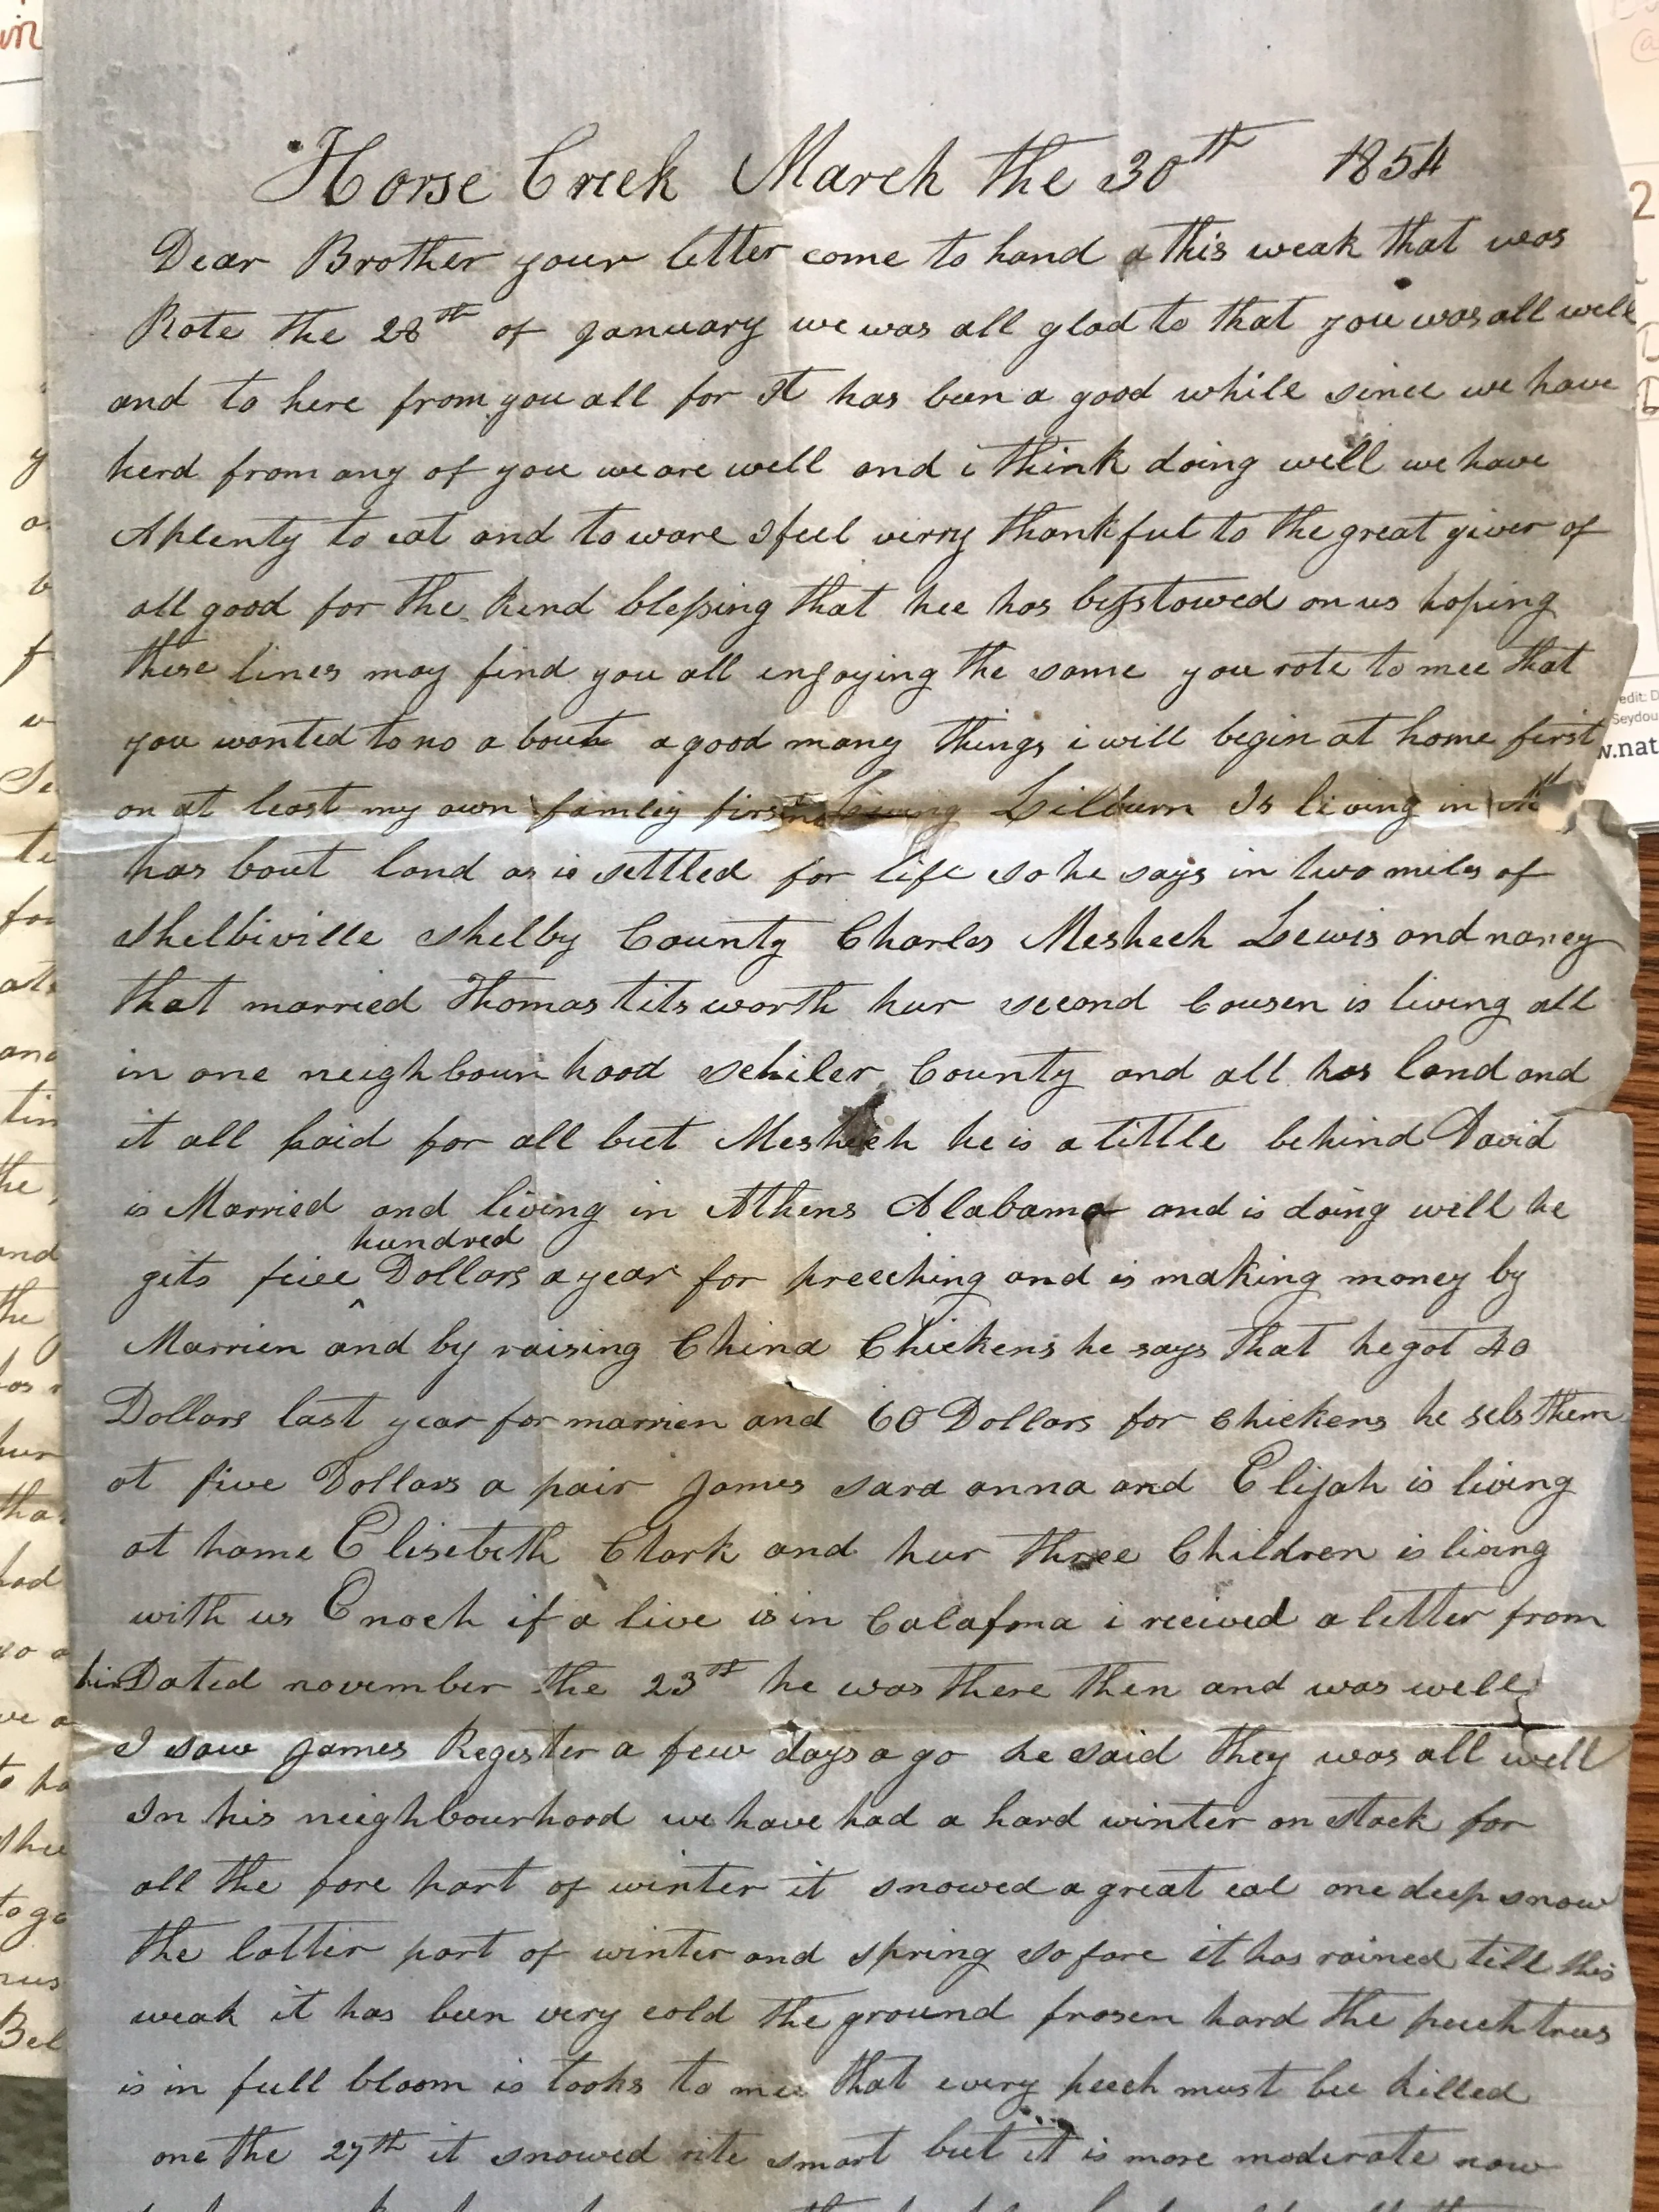 Horse Creek March the 30th 1854
Dear Brother your letter come to hand a this weak that was
Rote the 28th of January we was all glad to that you was all well
and to here from you all for It has been a good while since we have
herd from any of you we are well and i think doing well we have
Aplenty to eat and to ware I feel verry thankful to the great giver of
all good for the kind blessing that hee has besstowed on us hoping
these lines may find you all enjoying the same you rote to mee that
you wanted to no a bout a good many things i will begin at home first
or at least my own famley first Lilburn Is living in
has bout land as is settled for life so he says in two miles of
Shelbiville Shelby County Charles Mesheck Lewis and nancy
that married Thomas titsworth hur second Cousen is living all
in one neighbour hood Schiler County and all has land and
it all paid for all but Mesheck he is a little behind David
is Married and living in Athens Alabama and is doing well he
hundred
gits five ^ Dollars a year for preeching and is making money by
Marrien and by raising China Chickens he says that he got 40
Dollars last year for marrien and 60 Dollars for chickens he sels them
at five Dollars a pair James sara anna and Elijah is living
at home Elisebeth Clark and hur three Children is living
with us Enoch if a live is in Calafrna i recived a letter from
him Dated november the 23rd he was there then and was well
I saw James Register a few days a go he said they was all well
In his neighbourhood we have had a hard winter on stock for
all the fore part of winter it snowed a great eal one deep snow
the latter part of winter and spring so fare it has rained till this
weak it has been very cold the ground frosen hard the peech trees
is in full bloom is looks to mee that every peech must bee killed
one the 27th it snowed rite smart but it is more moderate now